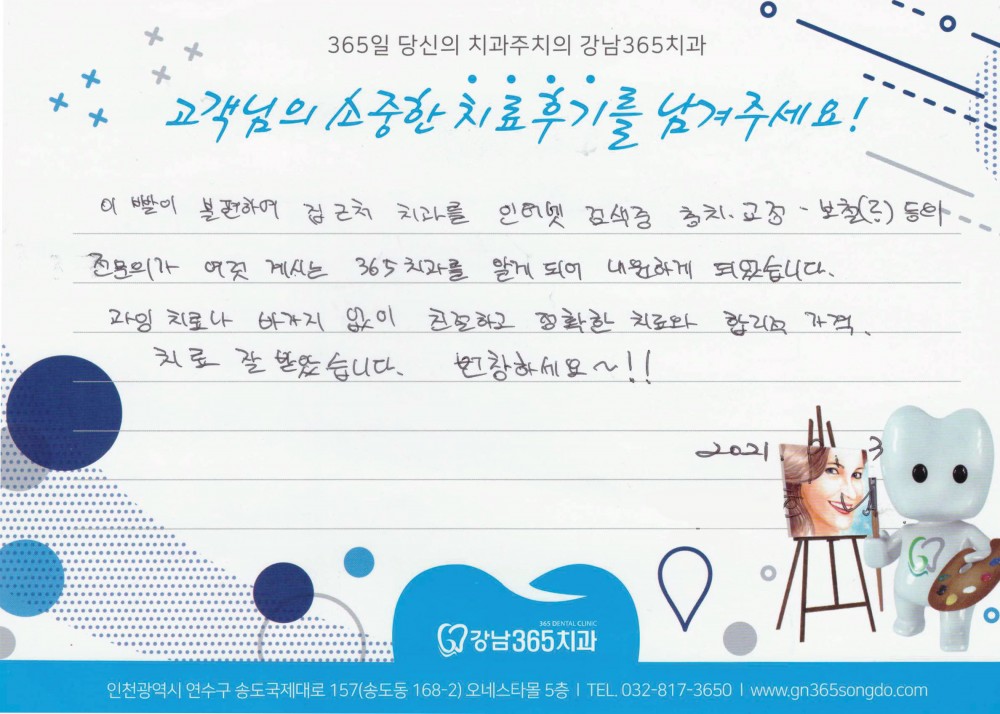 365일 당신의 치과주치의 강남365치과
고객님의 소중한 치료후기를 남겨주세요!
이빨이 불편하여 집 근처 치과를 인터넷 검색중 충치.교정 - 보철(류) 등의
전문의가 여럿 계시는 365치과를 알게 되어 내원하게 되었습니다.
과잉 치료나 바가지 없이 친절하고 정확한 치료와 합리적 가격.
치료 잘 받았습니다. 번창하세요~!!
2021. 3
365 DENTAL CLINIC
강남365치과
인천광역시 연수구 송도국제대로 157(송도동 168-2) 오네스타몰 5층 | TEL. 032-817-3650 | www.gn365songdo.com